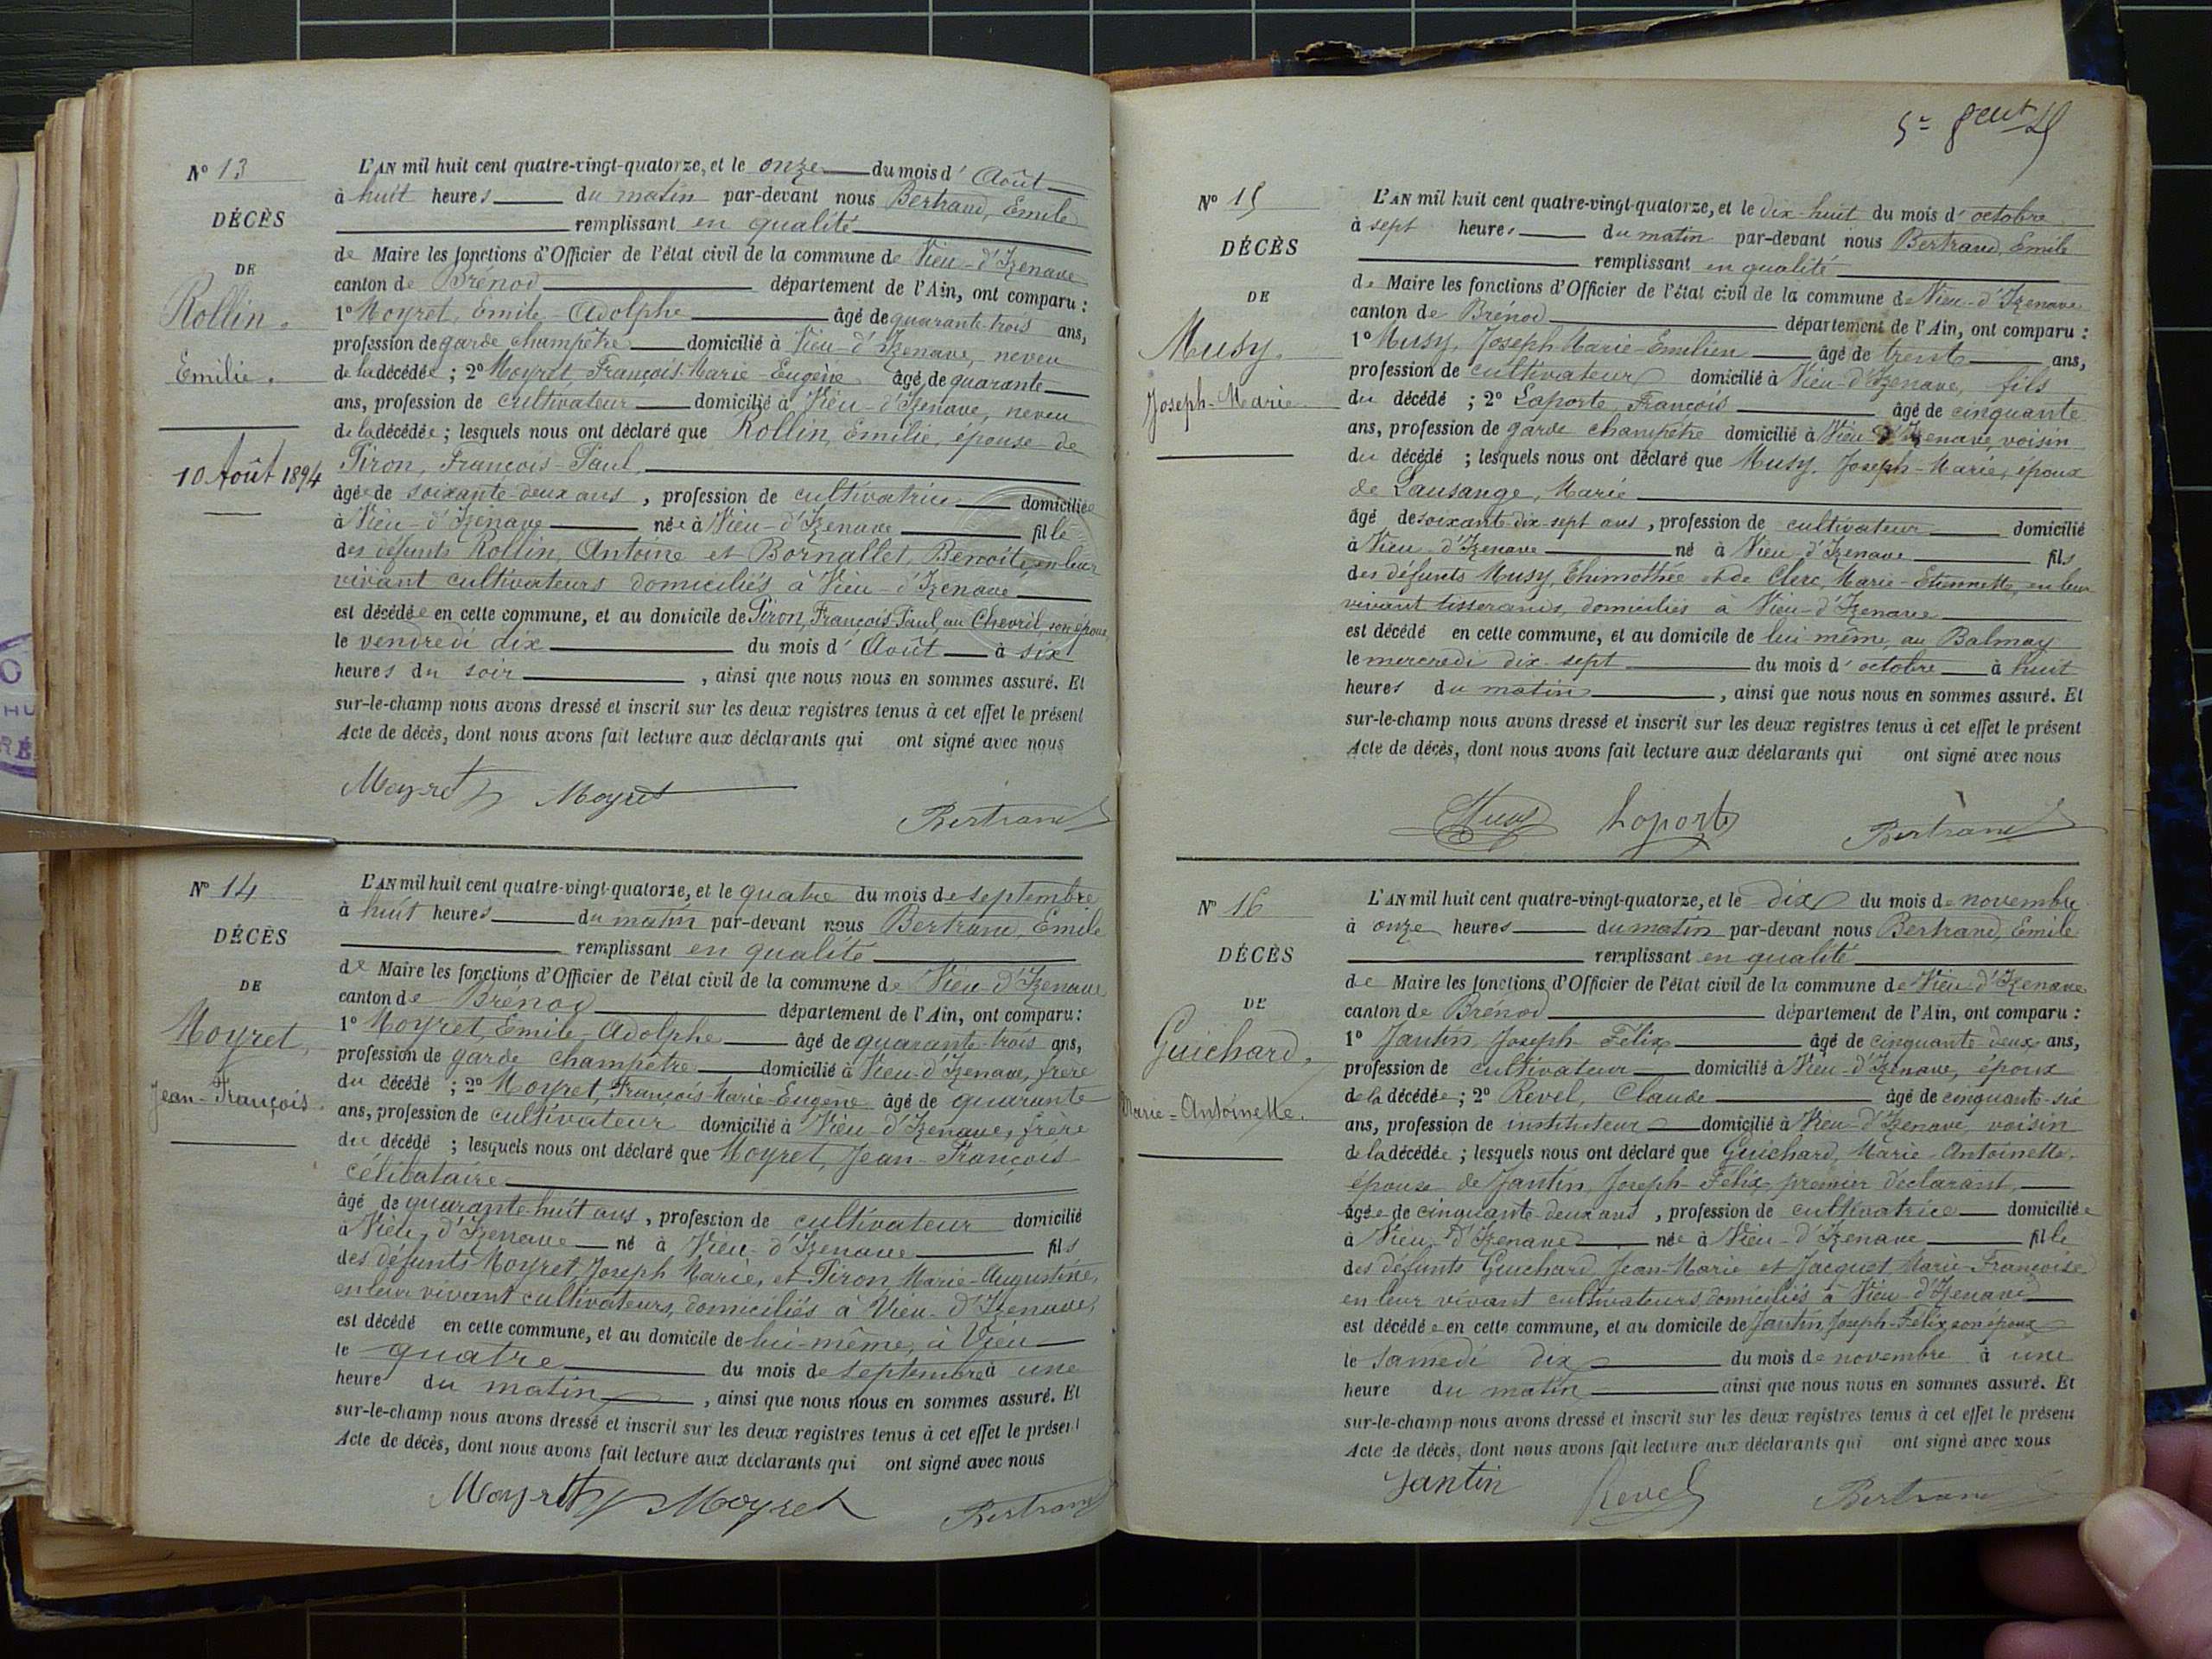 N° 13
DÉCÈS
DE
Rollin.
Emilie.
10 Août 1894
L'AN mil huit cent quatre-vingt-quatorze, et le onze du mois d'Août
à huit heures du matin par-devant nous Bertrand, Emile
remplissant en qualité
de Maire les fonctions d'Officier de l'état civil de la commune de Vieu-d'Izenave
canton de Brénod département de l'Ain, ont comparu :
1° Moyret, Emile-Adolphe âgé de quarante-trois ans,
profession de garde champêtre domicilié à Vieu-d'Izenave, neveu
de la décédée ; 2° Moyret, François-Marie-Eugène âgé de quarante
ans, profession de cultivateur domicilié à Vieu-d'Izenave, neveu
de la décédée ; lesquels nous ont déclaré que Rollin, Emilie, épouse de
Piron, François-Paul,
âgée de soixante-deux ans, profession de cultivatrice domiciliée
à Vieu-d'Izenave née à Vieu-d'Izenave fille
des défunts Rollin, Antoine et Bornallet, Benoîte en leur
vivant cultivateurs domiciliés à Vieu-d'Izenave
est décédée en cette commune, et au domicile de Piron, François-Paul, au Chevril, son époux,
le vendredi dix du mois d'Août à six
heures du soir, ainsi que nous nous en sommes assuré. Et
sur-le-champ nous avons dressé et inscrit sur les deux registres tenus à cet effet le présent
Acte de décès, dont nous avons fait lecture aux déclarants qui ont signé avec nous
Moyret Moyret Bertrand
N° 14
DÉCÈS
DE
Moyret,
Jean-François.
L'AN mil huit cent quatre-vingt-quatorze, et le quatre du mois de septembre
à huit heures du matin par-devant nous Bertrand, Emile
remplissant en qualité
de Maire les fonctions d'Officier de l'état civil de la commune de Vieu-d'Izenave
canton de Brénod département de l'Ain, ont comparu :
1° Moyret, Emile-Adolphe âgé de quarante-trois ans,
profession de garde champêtre domicilié à Vieu-d'Izenave, frère
du décédé ; 2° Moyret, François-Marie-Eugène âgé de quarante
ans, profession de cultivateur domicilié à Vieu-d'Izenave, frère
du décédé ; lesquels nous ont déclaré que Moyret, Jean-François
célibataire
âgé de quarante-huit ans, profession de cultivateur domicilié
à Vieu-d'Izenave né à Vieu-d'Izenave fils
des défunts Moyret, Joseph Marie, et Piron, Marie-Augustine,
en leur vivant cultivateurs, domiciliés à Vieu-d'Izenave,
est décédé en cette commune, et au domicile de lui-même, à Vieu
le quatre du mois de septembre à une
heure du matin, ainsi que nous nous en sommes assuré. Et
sur-le-champ nous avons dressé et inscrit sur les deux registres tenus à cet effet le présent
Acte de décès, dont nous avons fait lecture aux déclarants qui ont signé avec nous
Moyret Moyret Bertrand
N° 15
DÉCÈS
DE
Musy.
Joseph-Marie.
L'AN mil huit cent quatre-vingt-quatorze, et le dix-huit du mois d'octobre
à sept heures du matin par-devant nous Bertrand, Emile
remplissant en qualité
de Maire les fonctions d'Officier de l'état civil de la commune de Vieu-d'Izenave
canton de Brénod département de l'Ain, ont comparu :
1° Musy, Joseph Marie-Emilien âgé de trente ans,
profession de cultivateur domicilié à Vieu-d'Izenave, fils
du décédé ; 2° Laporte, François âgé de cinquante
ans, profession de garde champêtre domicilié à Vieu-d'Izenave, voisin
du décédé ; lesquels nous ont déclaré que Musy, Joseph-Marie, époux
de Lausange, Marie
âgé de soixante-dix-sept ans, profession de cultivateur domicilié
à Vieu-d'Izenave né à Vieu-d'Izenave fils
des défunts Musy, Thimothée et de Clerc, Marie-Etiennette, en leur
vivant tisserands, domiciliés à Vieu-d'Izenave
est décédé en cette commune, et au domicile de lui-même, au Balmay
le mercredi dix-sept du mois d'octobre à huit
heures du matin, ainsi que nous nous en sommes assuré. Et
sur-le-champ nous avons dressé et inscrit sur les deux registres tenus à cet effet le présent
Acte de décès, dont nous avons fait lecture aux déclarants qui ont signé avec nous
Musy Laporte Bertrand
N° 16
DÉCÈS
DE
Guichard,
Marie-Antoinette.
L'AN mil huit cent quatre-vingt-quatorze, et le dix du mois de novembre
à onze heures du matin par-devant nous Bertrand, Emile
remplissant en qualité
de Maire les fonctions d'Officier de l'état civil de la commune de Vieu-d'Izenave
canton de Brénod département de l'Ain, ont comparu :
1° Jantin, Joseph-Félix âgé de cinquante-deux ans,
profession de cultivateur domicilié à Vieu-d'Izenave, époux
de la décédée ; 2° Revel, Claude âgé de cinquante-six
ans, profession de instituteur domicilié à Vieu-d'Izenave, voisin
de la décédée ; lesquels nous ont déclaré que Guichard, Marie-Antoinette.
épouse de Jantin, Joseph-Félix, premier déclarant,
âgée de cinquante-deux ans, profession de cultivatrice domiciliée
à Vieu-d'Izenave née à Vieu-d'Izenave fille
des défunts Guichard, Jean-Marie et Jacquet, Marie-Françoise
en leur vivant cultivateurs domiciliés à Vieu-d'Izenave
est décédée en cette commune, et au domicile de Jantin, Joseph-Félix, son époux
le samedi dix du mois de novembre à une
heure du matin ainsi que nous nous en sommes assuré. Et
sur-le-champ nous avons dressé et inscrit sur les deux registres tenus à cet effet le présent
Acte de décès, dont nous avons fait lecture aux déclarants qui ont signé avec nous
Jantin Revel Bertrand